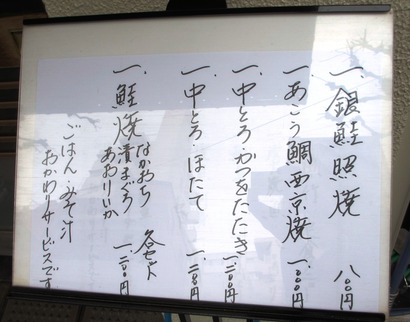 一、銀鮭照焼 八〇〇円
一、あこう鯛西京焼 一、〇〇〇円
一、中とろ・かつをたたき 一、二〇〇円
一、中とろ・ほたて 一、二〇〇円
一、鮭焼 なかおち 漬まぐろ あおりいか 各セット 一、二〇〇円
ごはん・みそ汁
おかわりサービスです